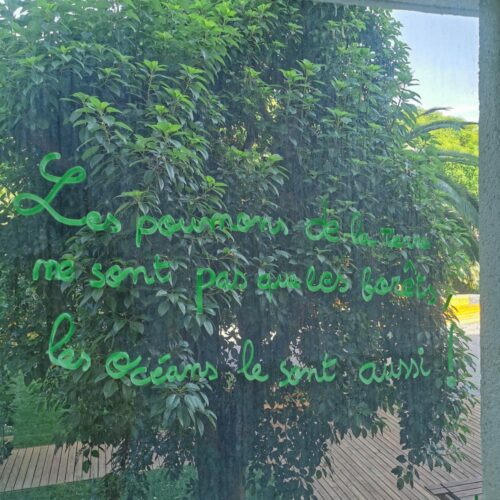 Les poumons de la Terre
ne sont pas que les forêts !
les océans le sont aussi !